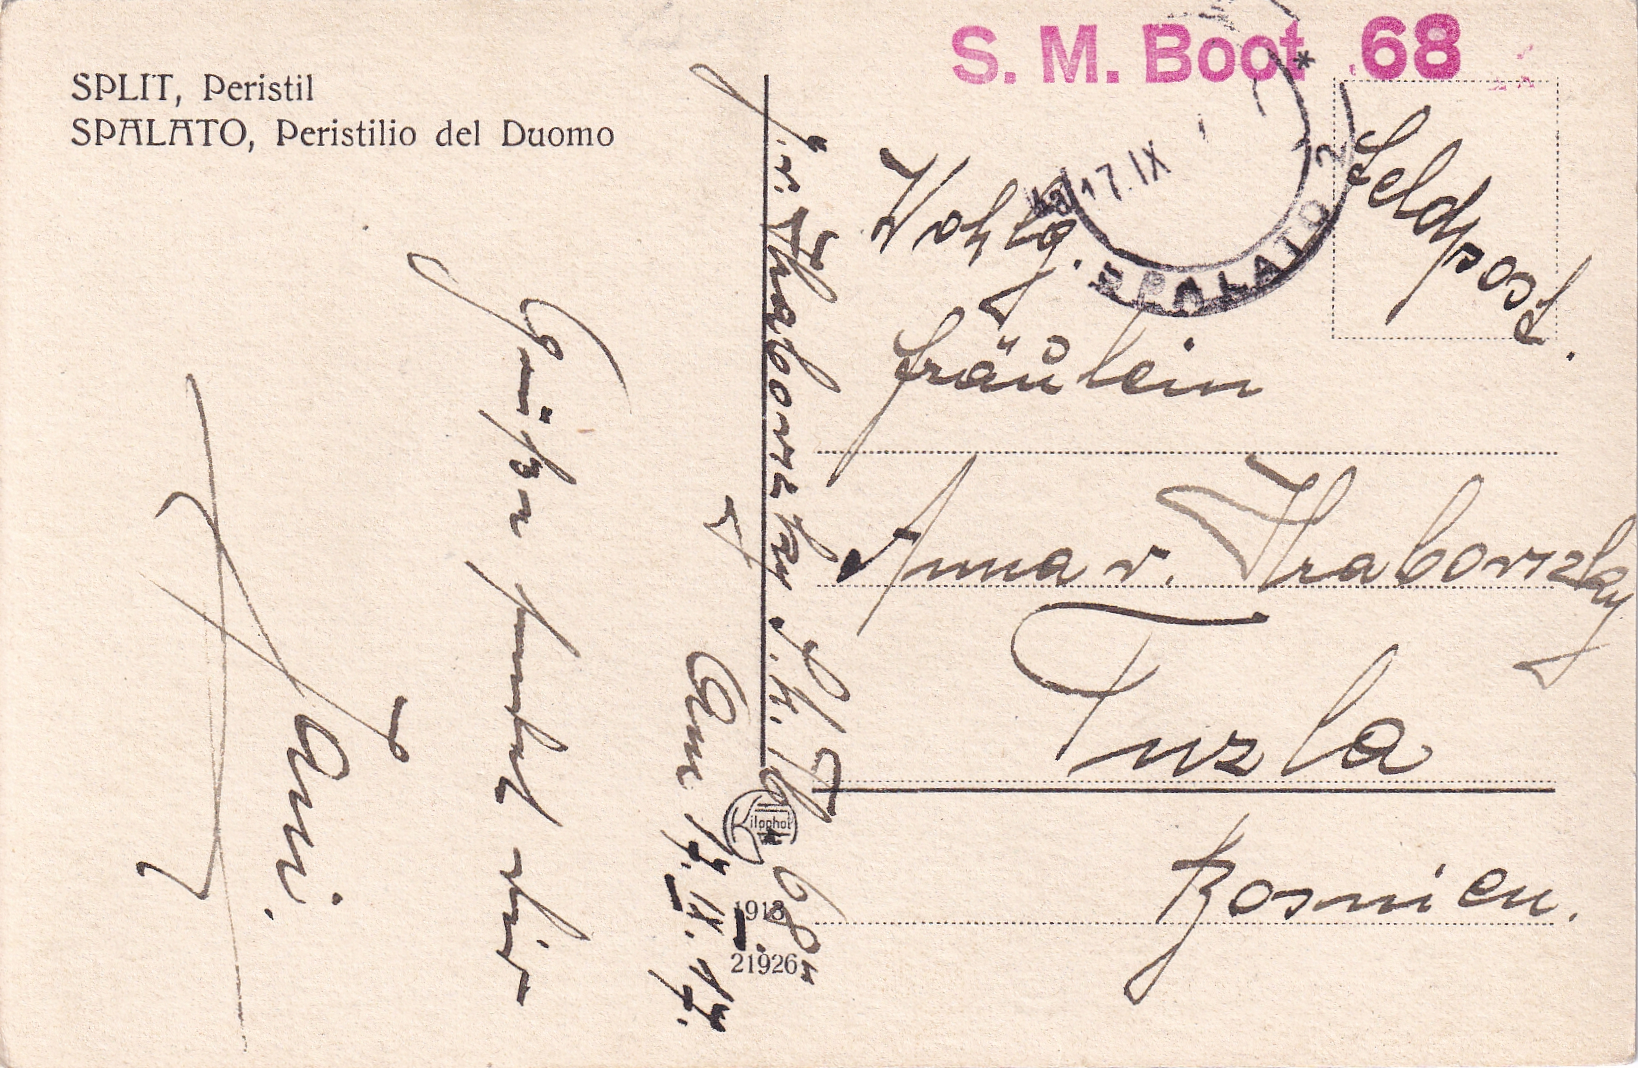 SPLIT, Peristil
SPALATO, Peristilio del Duomo
S. M. Boot 68
Feldpost.
17. IX
SPALATO 2
Wohlg.
Fräulein
Anna v. Hrabovszky
Tuzla
Bosnien.
J. v. Hrabovszky S. M. Tb. "68"
Am 17. IX. 17.
Grüsse sendet dir
Jani.
1913
21926